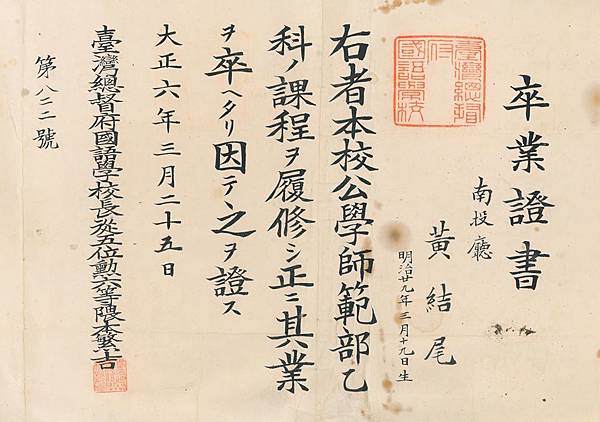 卒業證書
南投廳
黃結尾
明治廿九年三月十九日生
臺灣總督
府
國語學校
右者本校公學師範部乙
科ノ課程ヲ履修シ正ニ其業
ヲ卒ヘタリ因テ之ヲ證ス
大正六年三月二十五日
臺灣總督府國語學校長從五位勳六等隈本繁吉
第八二二號